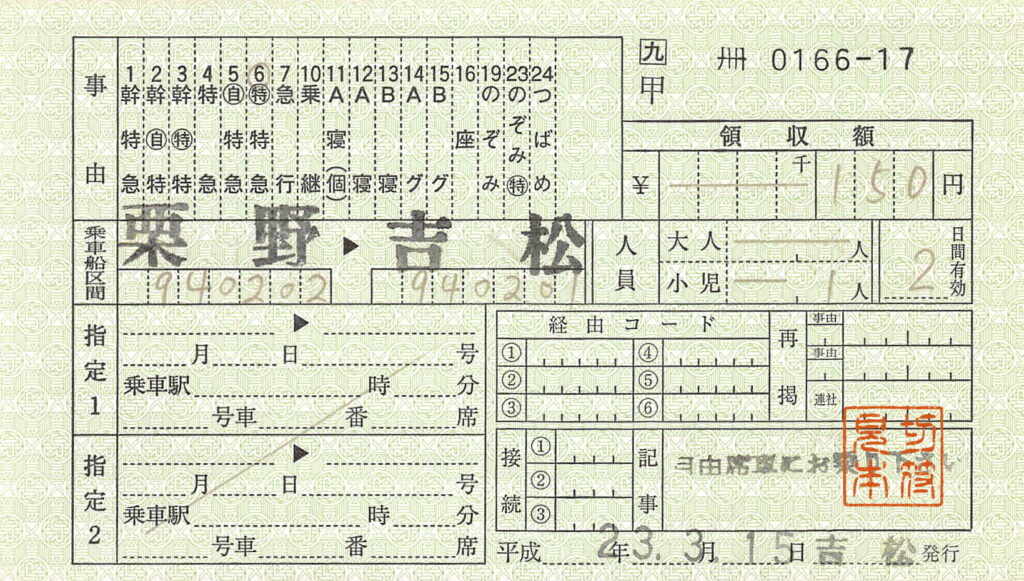 九 冊 0166-17
甲
事由
1 幹特急
2 幹自特
3 幹特特
4 特急
5 自特急
6 特特急
7 急行
10 乗継
11 A寝(個)
12 A寝
13 B寝
14 Aグ
15 Bグ
16 座
19 のぞみ
23 のぞみ特
24 つばめ
領収額
¥ 千 150 円
乗車船区間
栗野 ▶ 吉松
940202 940201
人員
大人 人
小児 1 人
2 日間有効
指定1
▶
月 日 号
乗車駅 時 分
号車 番 席
指定2
▶
月 日 号
乗車駅 時 分
号車 番 席
経由コード
① ④
② ⑤
③ ⑥
再掲
事由
事由
連社
接続
①
②
③
記事
自由席車にお乗り下さい
切符見本
平成 23年 3.月 15日 吉松 発行